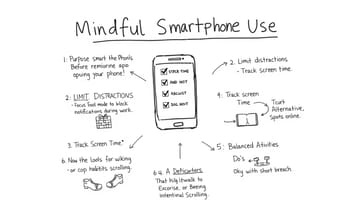 Mindful Smartphone Use
1: Purpose smart the Phon's
Before remionne apo
opuing your phone!
2: LIMIT DISTRACTIONS
- Focus Tool mode to block
notifications during work.
3. Track Screen Time"
6. Now the loots for wiking
- or cop habtits scrolling.
STICK TIME
AND NOT
DOL NOT
64. A
That
Excorise, or Boeing
Intentional Scrolling.
2. Limit distractions
- Track Screen time.
4: Track screen
Time
Tcurt
Alternative,
Spots online.
5: Balanced Ativities
Do's
Oky with short breach